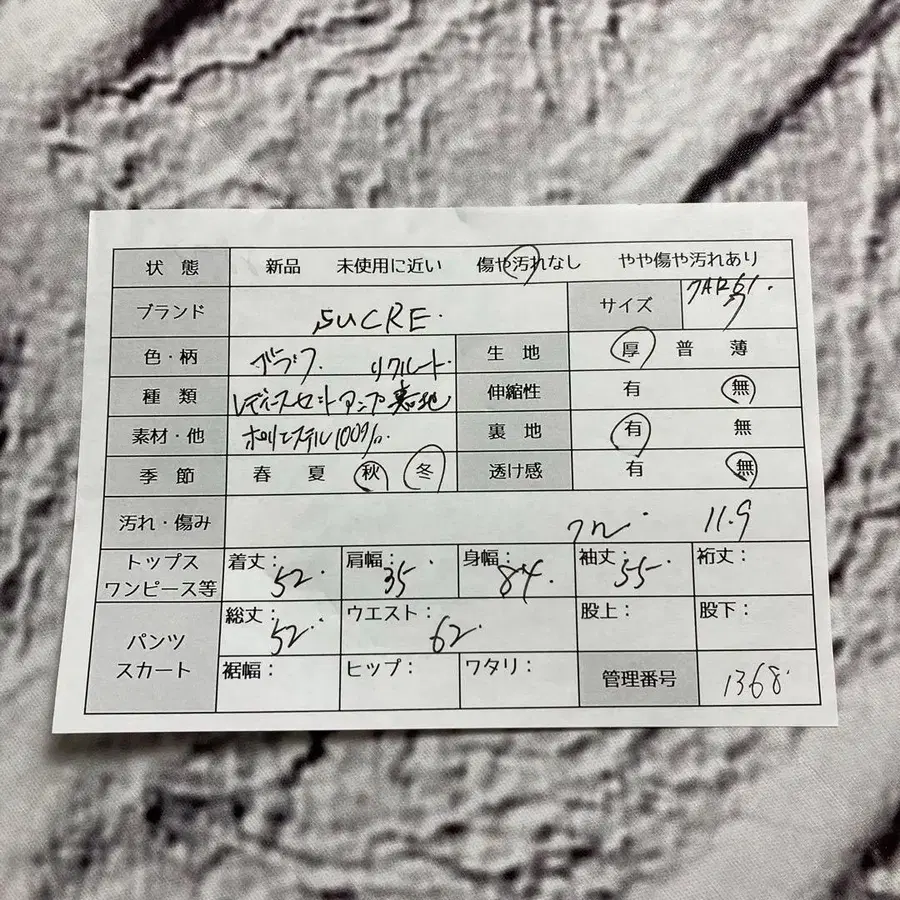 状態 新品 未使用に近い 傷や汚れなし やや傷や汚れあり
ブランド SUCRE. サイズ
色・柄 ブラック. リクルート. 生地 厚 普 薄
種類 レディースセットアップ 伸縮性 有 無
素材・他 ポリエステル100%. 裏地 有 無
季節 春 夏 秋 冬 透け感 有 無
汚れ・傷み 11.9
トップス ワンピース等 着丈: 52. 肩幅: 35. 身幅: 84. 袖丈: 55. 裄丈:
パンツ スカート 総丈: 52. ウエスト: 62. 股上: 股下:
裾幅: ヒップ: ワタリ: 管理番号 1368.